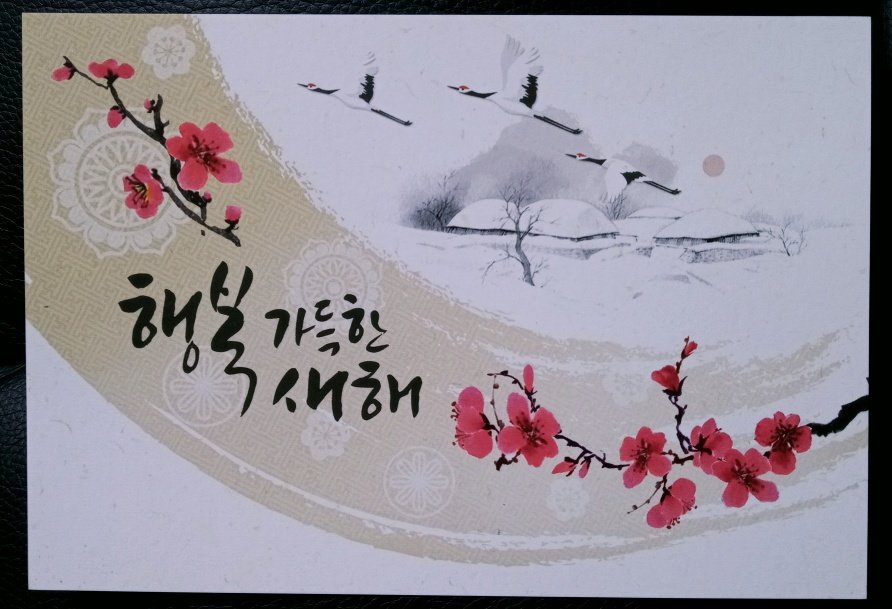 행복 가득한
새해